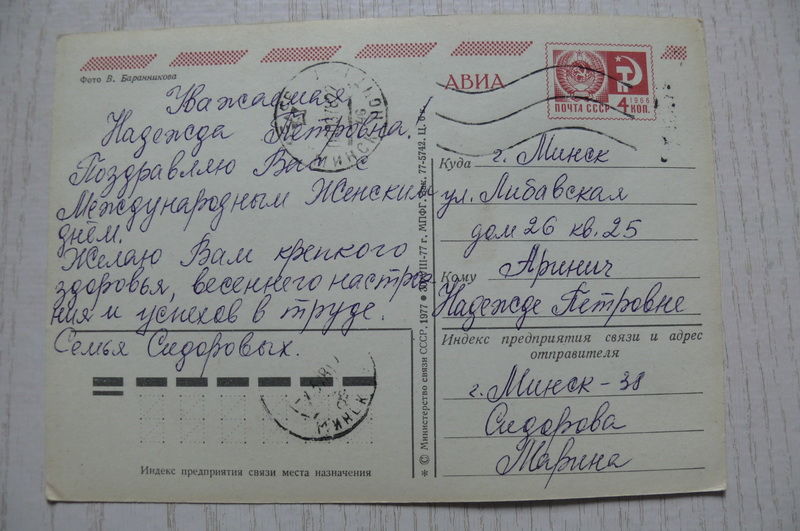 Фото В. Баранникова
Уважаемая
Надежда Петровна!
Поздравляю Вас с
Международным Женским
днём.
Желаю Вам крепкого
здоровья, весеннего настрое-
ния и успехов в труде.
Семья Сидоровых.
МИНСК
МИНСК
Индекс предприятия связи места назначения
* © Министерство связи СССР, 1977
МПФГ. Зак. 77-5742. Ц. 6 к.
АВИА
ПОЧТА СССР
1966
4 КОП.
Куда г. Минск
ул. Либавская
дом 26 кв. 25
Кому Аринич
Надежде Петровне
Индекс предприятия связи и адрес
отправителя
г. Минск-38
Сидорова
Марина